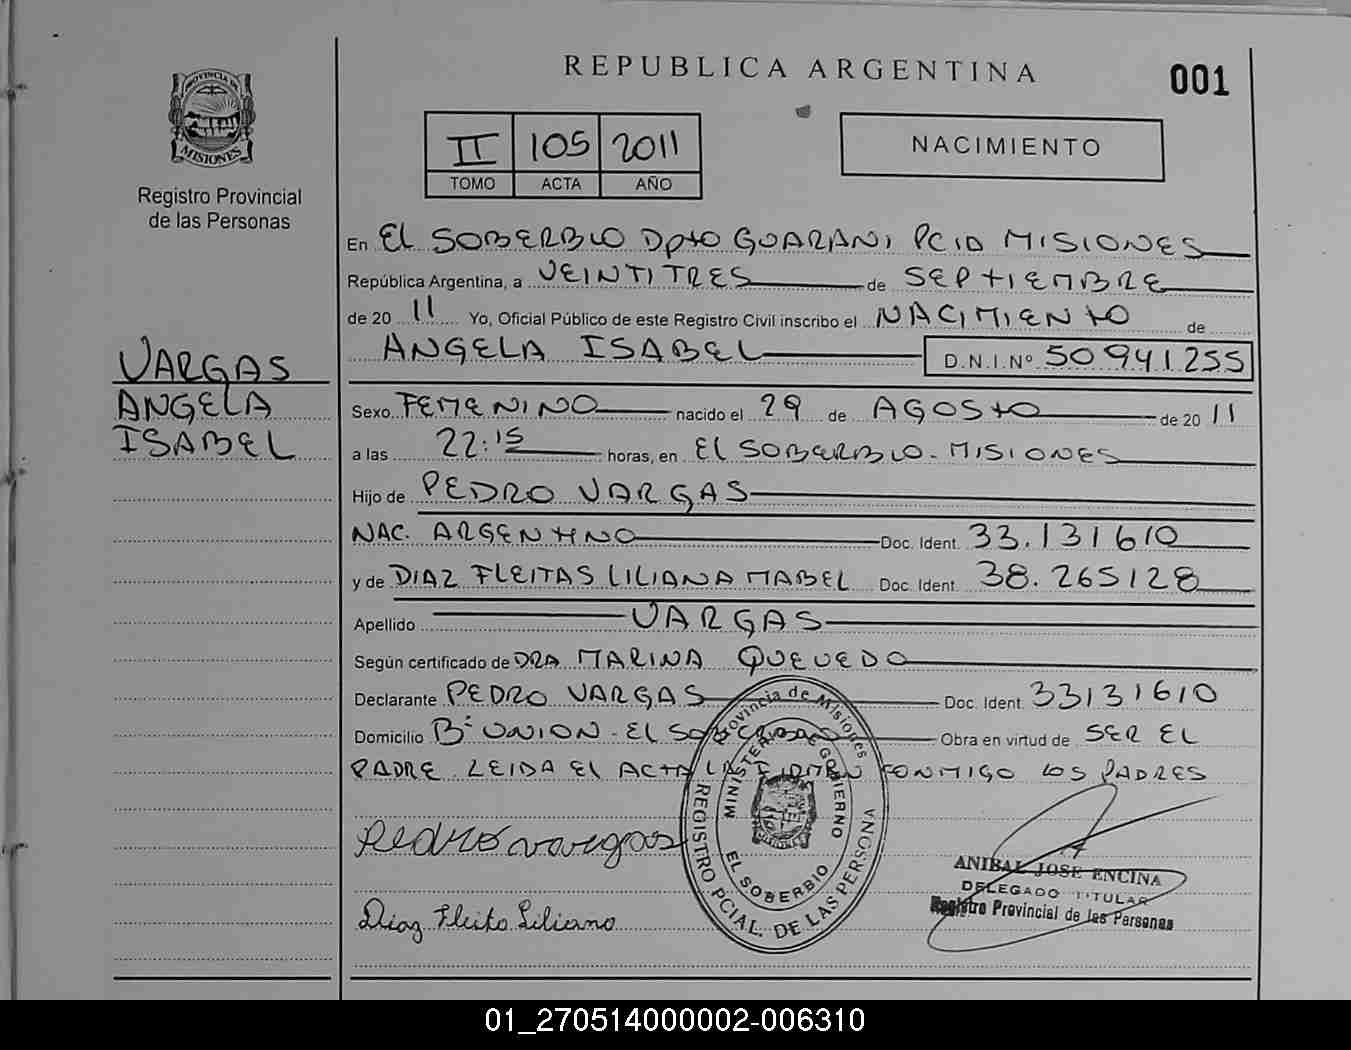 REPUBLICA ARGENTINA
001
PROVINCIA DE
MISIONES
Registro Provincial
de las Personas
II 105 2011
TOMO ACTA AÑO
NACIMIENTO
En EL SOBERBIO Dpto GUARANI PCIA MISIONES
República Argentina, a VEINTITRES de SEPTIEMBRE
de 20 11 Yo, Oficial Público de este Registro Civil inscribo el NACIMIENTO de
ANGELA ISABEL D.N.I.Nº 50941255
VARGAS
ANGELA
ISABEL
Sexo FEMENINO nacido el 29 de AGOSTO de 20 11
a las 22:15 horas, en EL SOBERBIO - MISIONES
Hijo de PEDRO VARGAS
NAC. ARGENTINO Doc. Ident. 33.131610
y de DIAZ FLEITAS LILIANA MABEL Doc. Ident. 38.265128
Apellido VARGAS
Según certificado de DRA MARINA QUEVEDO
Declarante PEDRO VARGAS Doc. Ident. 33131610
Domicilio Bº UNION - EL SOBERBIO Obra en virtud de SER EL
PADRE LEIDA EL ACTA LA FIRMAN CONMIGO LOS PADRES
Pedro vargas
Diaz Fleita Liliana
Provincia de Misiones
MINISTERIO DE GOBIERNO
EL SOBERBIO
REGISTRO PCIAL. DE LAS PERSONA
ANIBAL JOSE ENCINA
DELEGADO TITULAR
Registro Provincial de las Personas
01_270514000002-006310